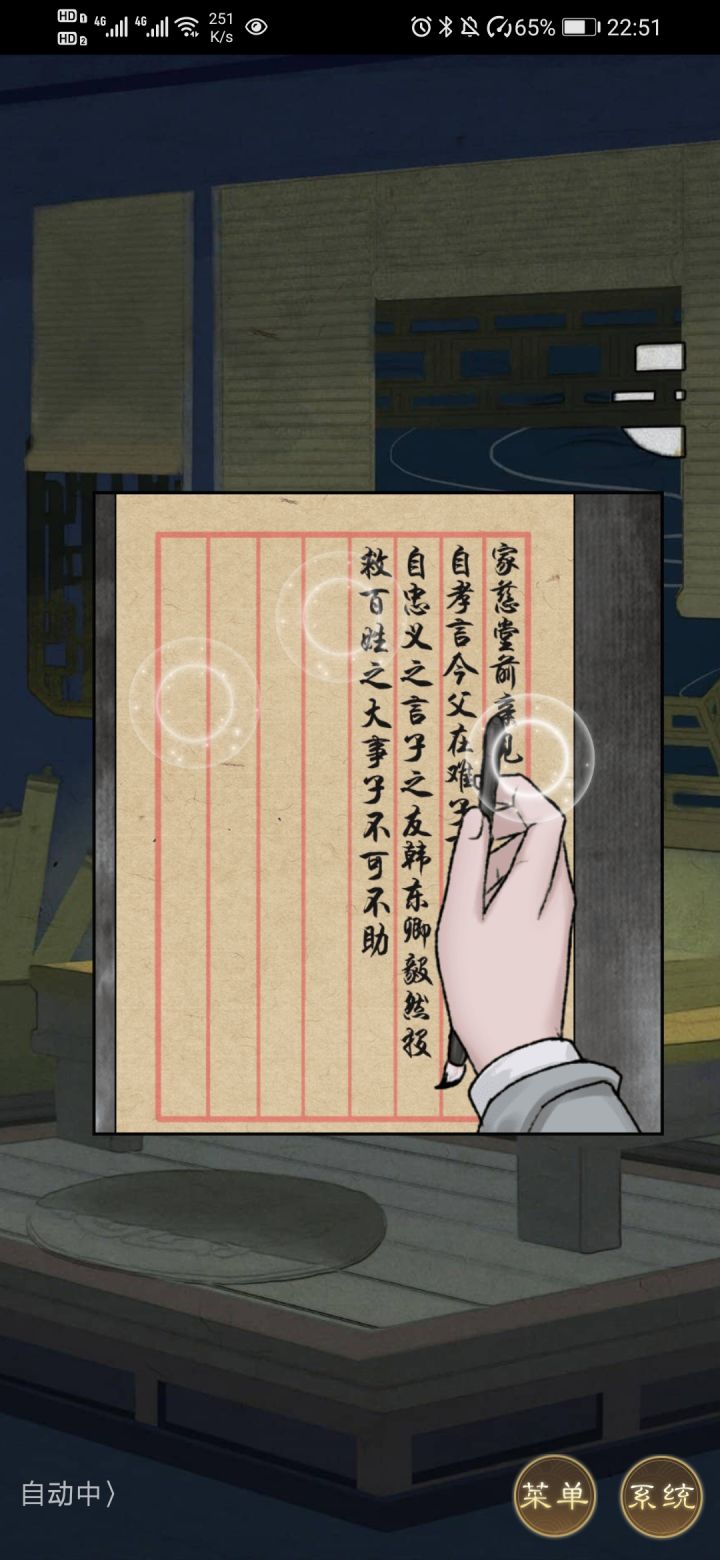 HD 1 4G 4G 251 65% 22:51
HD 2 K/s
家慈堂前亲见
自孝言今父在难子
自忠义之言子之友韩东卿毅然投
救百姓之大事子不可不助
自动中〉
菜单
系统